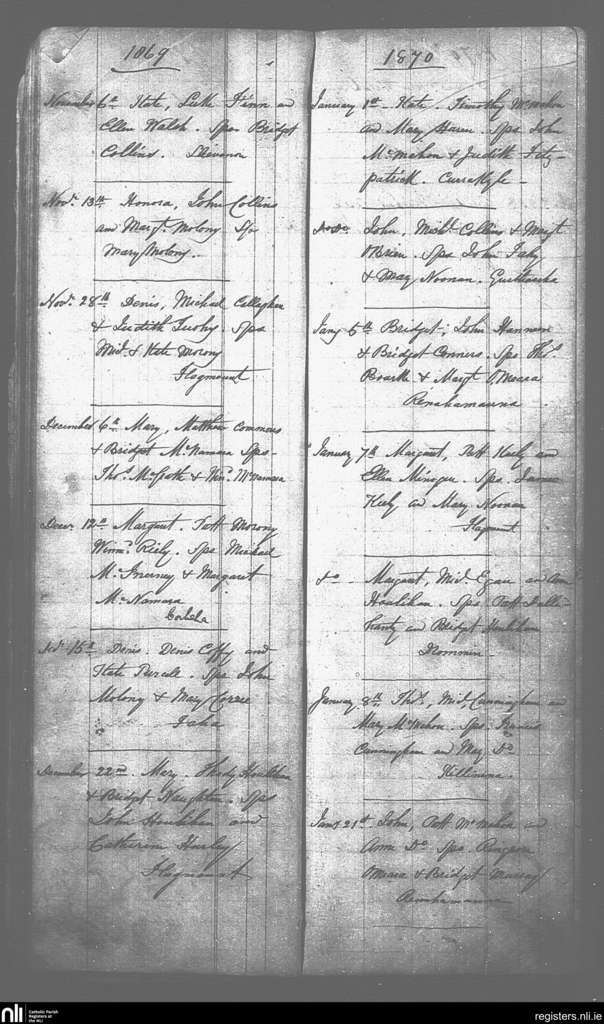 1869
November 6th Kate, Luke Finn and
Ellen Walsh. Spon Bridget
Collins.
Novr. 13th Honora, John Collins
and Margt. Molony Sp
Mary Molony.
Novr. 28th Denis, Michael Callaghan
& Judith Tuohy Sps
Mid. & Kate Morony
Flagmount
December 6th Mary, Matthew Commons
& Bridget McNamara Sps.
Thos. McGrath & Win. McNamara
Decr. 12th Margaret. Patt Morony
Winnd. Riely. Sps Michael
McInerney & Margaret
McNamara
15th Denis. Denis Coffy and
Kate Purcell. Sps John
Molony & Mary
Faha
December 22nd. Mary. Thady Houlihan
& Bridget Naughton. Sps
John Houlihan and
Catherine Hurley
Flagmount
1870
January 1st Kate. Timothy McMahon
and Mary. Sps John
McMahon & Judith Fitz-
patrick. Currakyle
Do Do John, Michl. Collins & Margt
OBrien. Sps John Fahy
& Mary Noonan.
Jany 5th Bridget, John Hannon
& Bridget Conners. Sps Thos.
Rourke & Margt OMeara
Renahamanna
January 7th Margaret, Patt Kiely and
Ellen Minogue. Sps. James
Kiely and Mary Noonan
Flagmount
do Margaret, Mid. Egan and Ann
Houlihan. Sps. Patt
and Bridget Houlihan
Drommin
January 8th Thos., Mid. Cunningham and
Mary McMahon. Sps. Francis
Cunningham and Mary Do
Killinina.
Jany 21st John, Patt McMahon and
Ann Do. Sps.
OMeara & Bridget Murray
Renahamanna
nli
Catholic Parish
Registers at
the NLI
registers.nli.ie